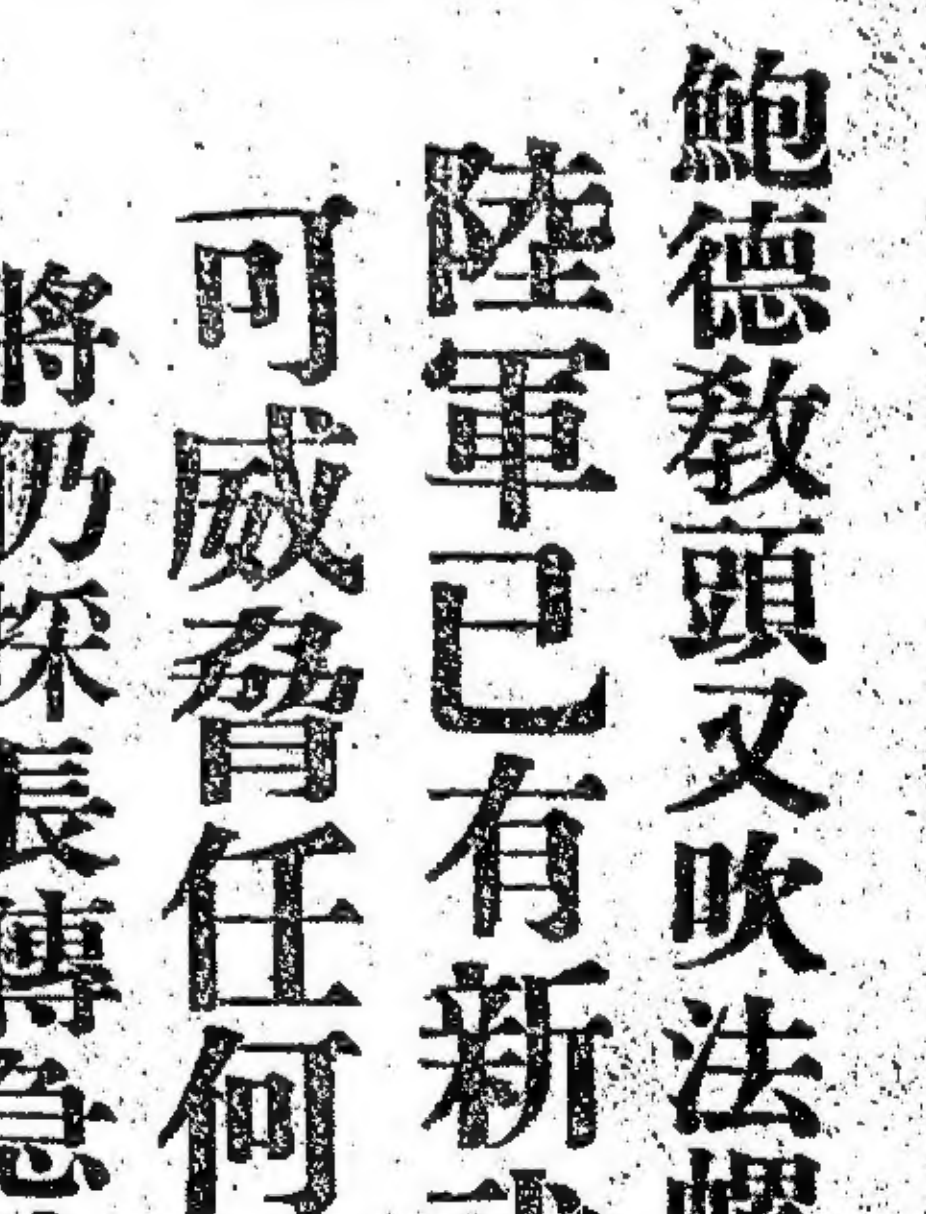 鮑德敎頭又吹法螺
陸軍已有新武
可威脅任何
將仍採長傳急